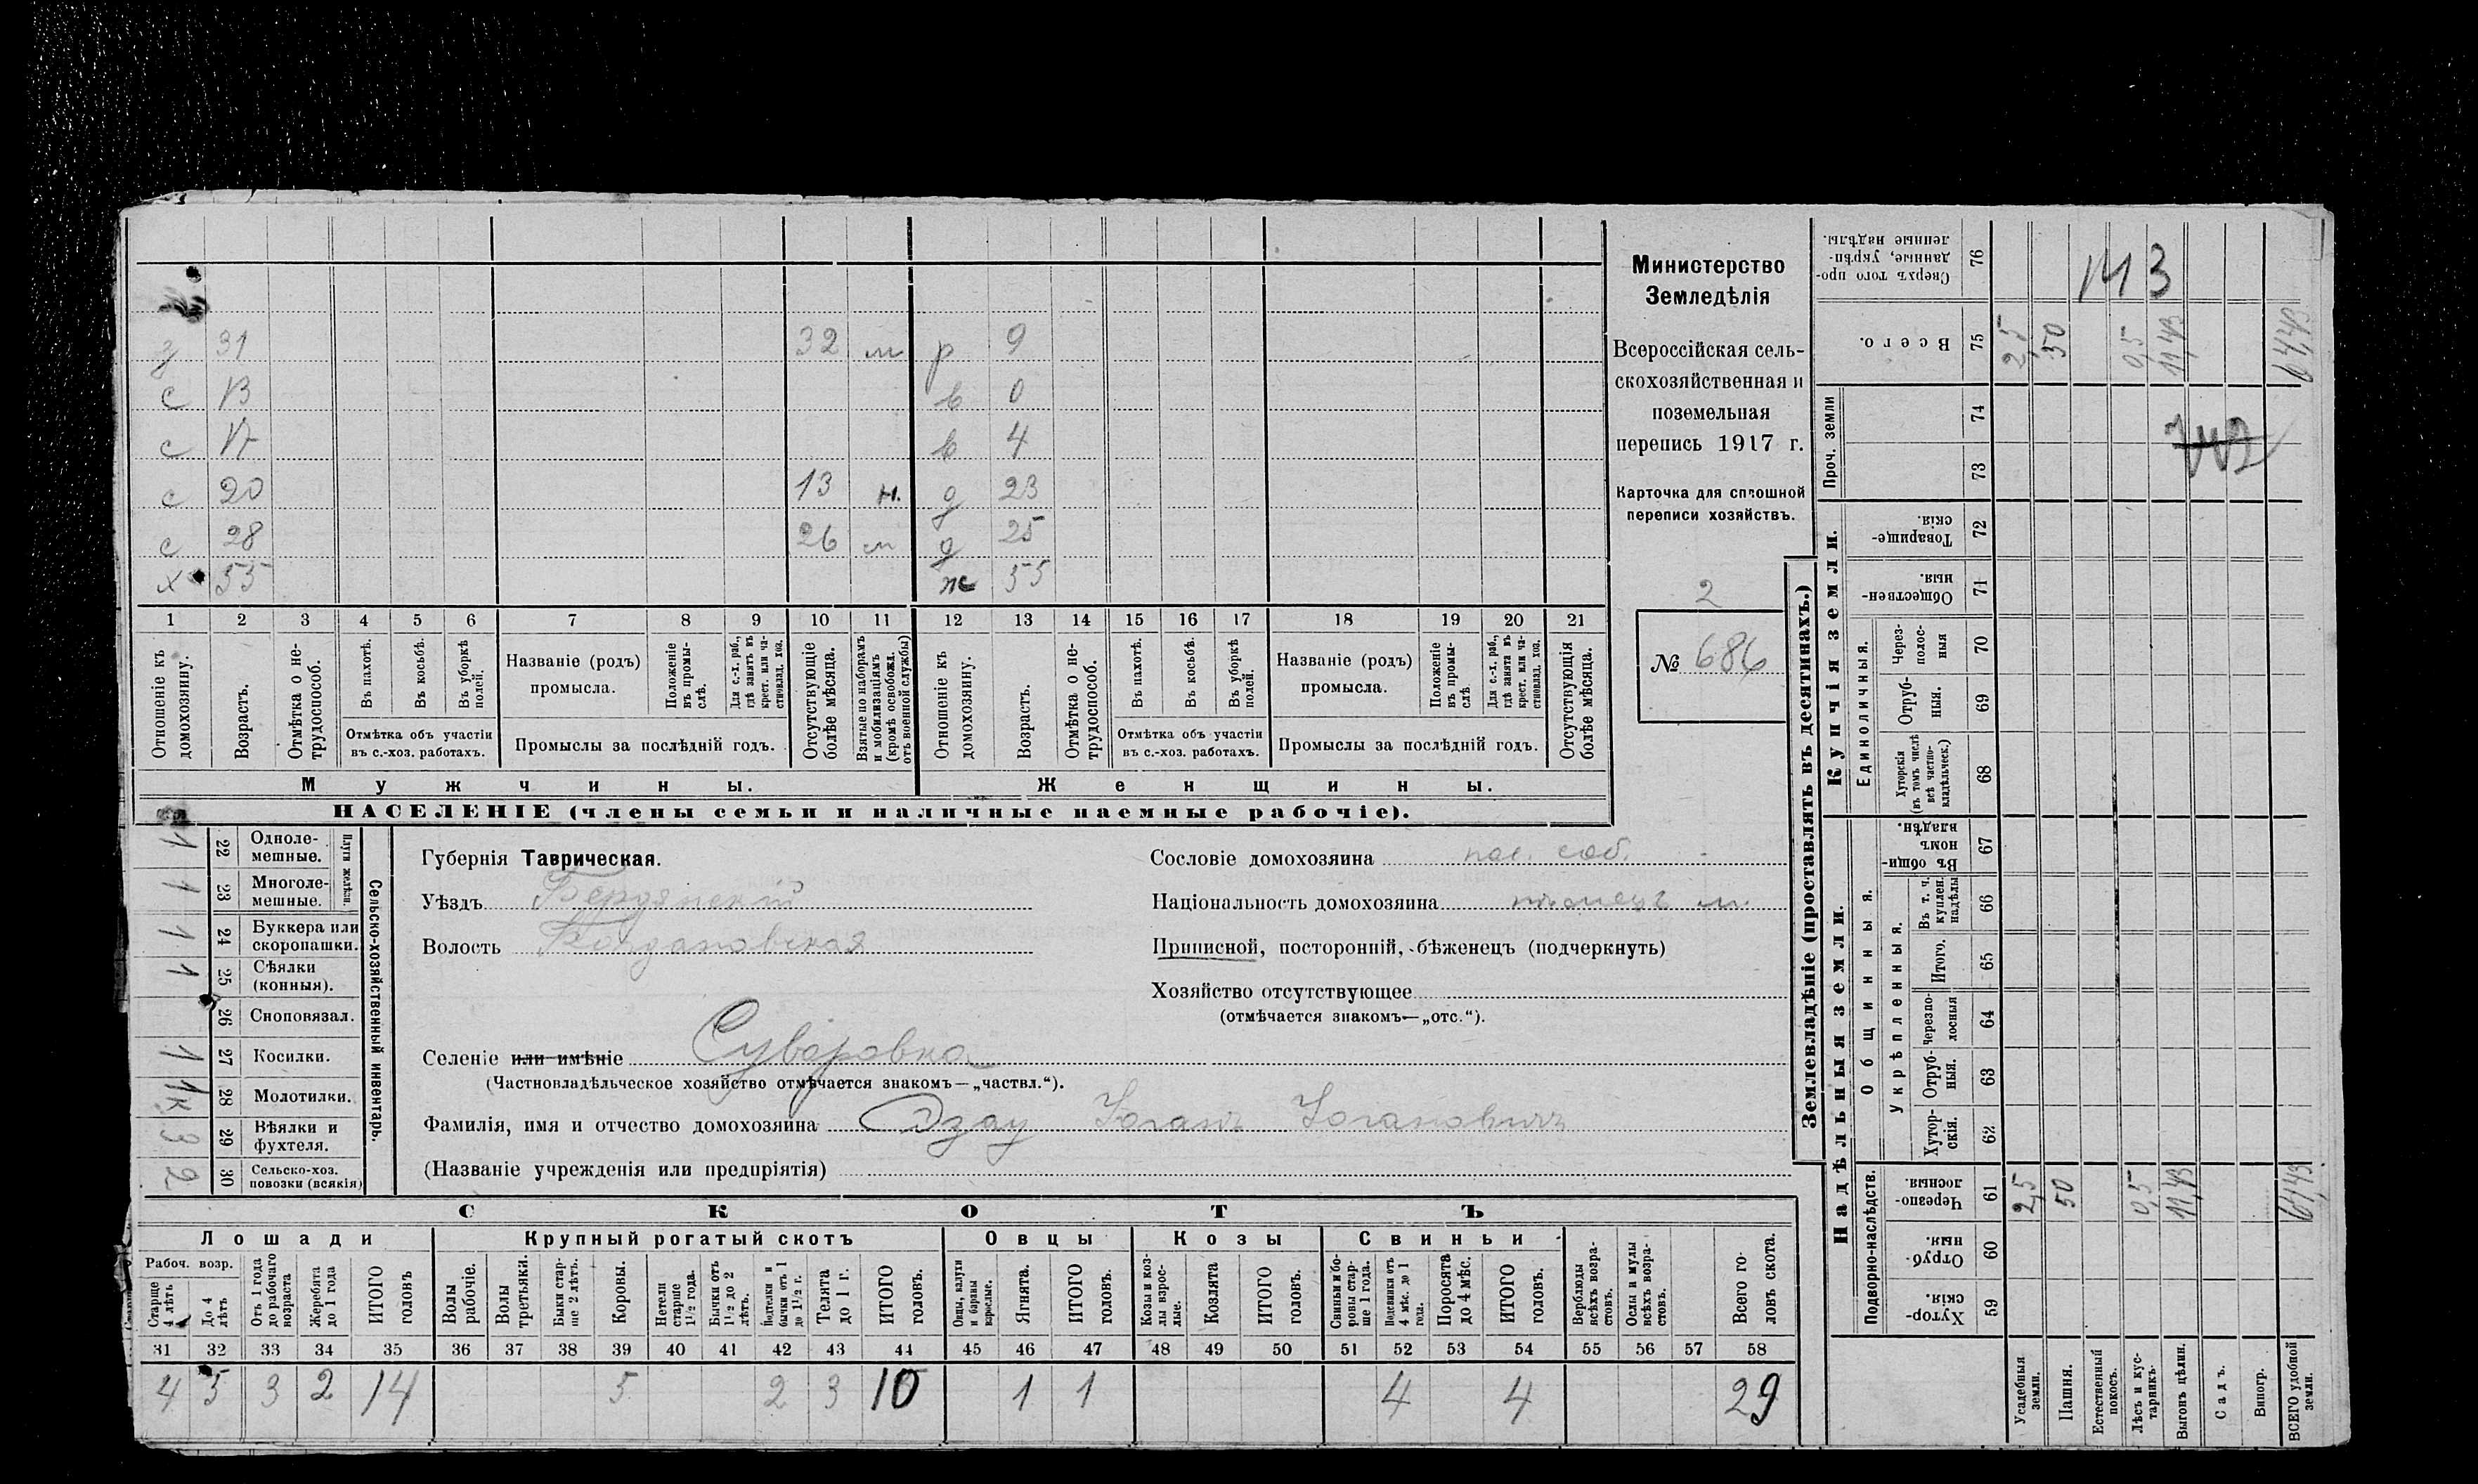 Министерство
Земледѣлія
Всероссійская сель-
скохозяйственная и
поземельная
перепись 1917 г.
Карточка для сплошной
переписи хозяйствъ.
2
№ 686
з 31 32 м р 9
с 13 в 0
с 17 в 4
с 20 13 н. д 23
с 28 26 м д 25
х 55 ж 55
1 2 3 4 5 6 7 8 9 10 11 12 13 14 15 16 17 18 19 20 21
Отношеніе къ домохозяину.
Возрастъ.
Отмѣтка о не-трудоспособ.
Въ пахотѣ.
Въ косьбѣ.
Въ уборкѣ полей.
Отмѣтка объ участіи
въ с.-хоз. работахъ.
Названіе (родъ)
промысла.
Положеніе въ промы-слѣ.
Для с.-х. раб., гдѣ занятъ въ крест. или ча-стновлад. хоз.
Промыслы за послѣдній годъ.
Отсутствующіе болѣе мѣсяца.
Взятые по наборамъ и мобилизаціямъ (кромѣ освобожд. отъ военной службы)
Отношеніе къ домохозяину.
Возрастъ.
Отмѣтка о не-трудоспособ.
Въ пахотѣ.
Въ косьбѣ.
Въ уборкѣ полей.
Отмѣтка объ участіи
въ с.-хоз. работахъ.
Названіе (родъ)
промысла.
Положеніе въ промы-слѣ.
Для с.-х. раб., гдѣ занята въ крест. или ча-стновлад. хоз.
Промыслы за послѣдній годъ.
Отсутствующія болѣе мѣсяца.
Мужчины. Женщины.
НАСЕЛЕНІЕ (члены семьи и наличные наемные рабочіе).
Сельско-хозяйственный инвентарь.
Плуги желѣзн.
1 22 Одноле-мешные.
1 23 Многоле-мешные.
1 24 Буккера или скоропашки.
1 25 Сѣялки (конныя).
26 Сноповязал.
1 27 Косилки.
1к 28 Молотилки.
3 29 Вѣялки и фухтеля.
2 30 Сельско-хоз. повозки (всякія)
Губернія Таврическая.
Уѣздъ Бердянскій
Волость Богдановская
Селеніе или имѣніе Суворовка
(Частновладѣльческое хозяйство отмѣчается знакомъ—„частвл.“).
Фамилія, имя и отчество домохозяина Дзау Іоганъ Іогановичъ
(Названіе учрежденія или предпріятія)
Сословіе домохозяина пос. соб.
Національность домохозяина нѣмецъ м.
Приписной, посторонній, бѣженецъ (подчеркнуть)
Хозяйство отсутствующее
(отмѣчается знакомъ—„отс.“).
СКОТЪ
Лошади Крупный рогатый скотъ Овцы Козы Свиньи
Рабоч. возр.
Старше 4 лѣтъ
До 4 лѣтъ
Отъ 1 года до рабочаго возраста
Жеребята до 1 года
ИТОГО головъ
Волы рабочіе.
Волы третьяки.
Быки стар-ше 2 лѣтъ.
Коровы.
Нетели старше 1½ года.
Бычки отъ 1½ до 2 лѣтъ.
Подтелки и бычки отъ 1 до 1½ г.
Телята до 1 г.
ИТОГО головъ.
Овцы, валухи и бараны взрослые.
Ягнята.
ИТОГО головъ.
Козы и коз-лы взрос-лые.
Козлята
ИТОГО головъ.
Свиньи и бо-ровы стар-ше 1 года.
Подсвинки отъ 4 мѣс. до 1 года.
Поросята до 4 мѣс.
ИТОГО головъ.
Верблюды всѣхъ возра-стовъ.
Ослы и мулы всѣхъ возра-стовъ.
Всего го-ловъ скота.
31 32 33 34 35 36 37 38 39 40 41 42 43 44 45 46 47 48 49 50 51 52 53 54 55 56 57 58
4 5 3 2 14 5 2 3 10 1 1 4 4 29
Землевладѣніе (проставлять въ десятинахъ.)
Надѣльныя земли. Купчія земли. Проч. земли
Подворно-наслѣдств. Общинныя. Единоличныя.
Укрѣпленныя.
59 Хутор-скія.
60 Отруб-ныя.
61 Черезпо-лосныя. 2,5 50 0,5 11,43 64,43
62 Хутор-скія.
63 Отруб-ныя.
64 Черезпо-лосныя
65 Итого.
66 Въ т. ч. куплен. надѣлы
67 Въ общин-номъ владѣн.
68 Хуторскія (въ томъ числѣ всѣ частно-владѣльческ.)
69 Отруб-ныя.
70 Через-полос-ныя
71 Обществен-ныя.
72 Товарище-скія.
73
74
75 Всего. 2,5 50 0,5 11,43 64,43
76 Сверхъ того про-данные, укрѣп-ленные надѣлы.
143
Усадебныя земли.
Пашня.
Естественный покосъ.
Лѣсъ и кус-тарникъ.
Выгонъ цѣлин.
Садъ.
Виногр.
ВСЕГО удобной земли.